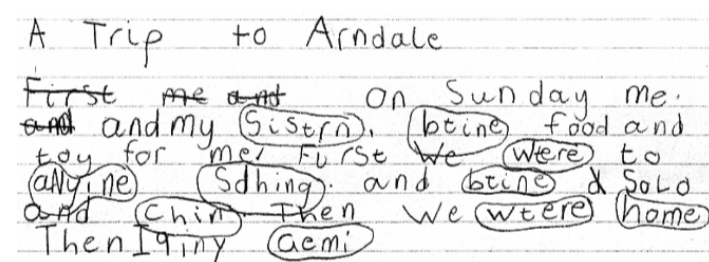 A Trip to Arndale
First me and on Sunday me.
and and my Sistrn, btine food and
toy for me, Furste We were to
anyine Sdhing. and btine d SoLd
and Chin Then We wtere home
Then I giny aemi